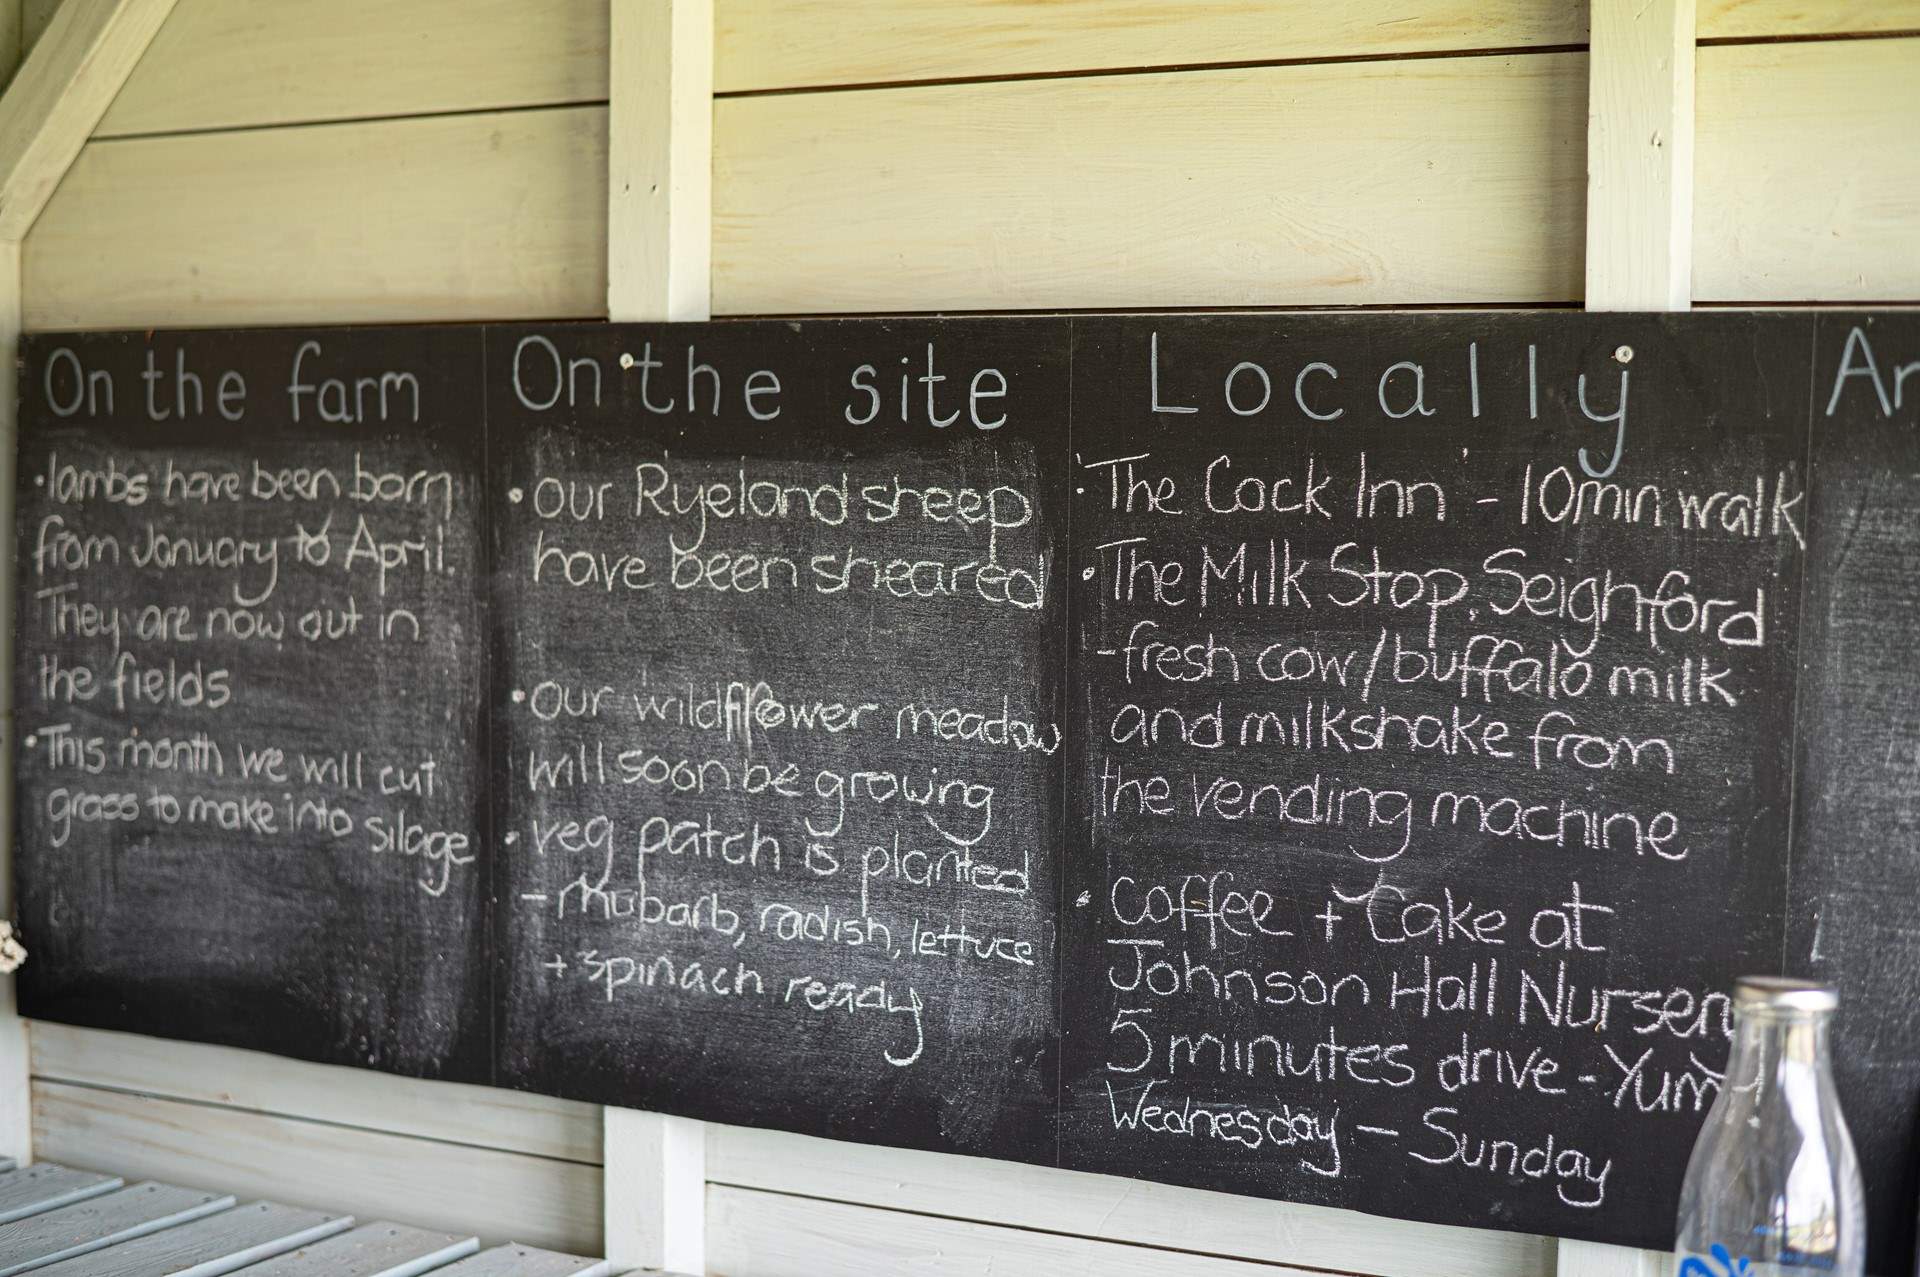 On the farm
• lambs have been born
from January to April.
They are now out in
the fields
• This month we will cut
grass to make into silage
On the site
• our Ryeland sheep
have been sheared
• our wildflower meadow
will soon be growing
• veg patch is planted
- rhubarb, radish, lettuce
+ spinach ready
Locally
• The Cock Inn - 10min walk
• The Milk Stop, Seighford
- fresh cow/buffalo milk
and milkshake from
the vending machine
• Coffee + Cake at
Johnson Hall Nursery
5 minutes drive - Yum!
Wednesday - Sunday